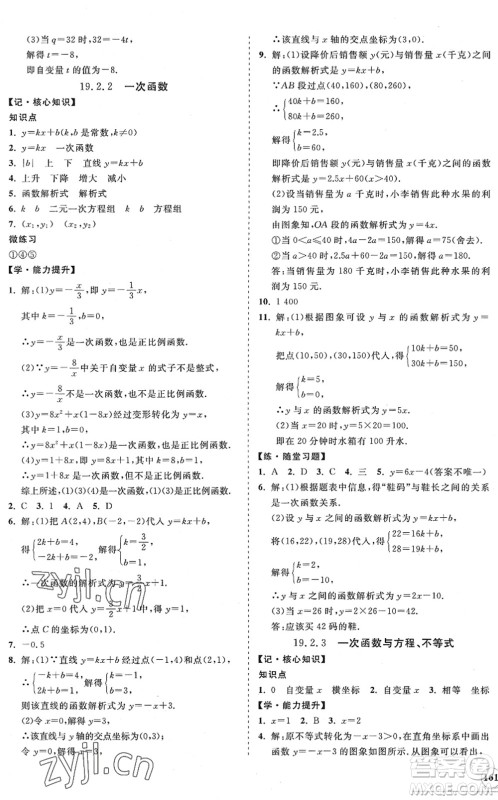 (3)当 q=32 时,32=-4t,
解得 t=-8.
故自变量 t 的值为-8.
19.2.2 一次函数
【记·核心知识】
知识点
1. y=kx+b(k,b 是常数,k≠0)
2. y=kx 一次函数
3. |b| 上 下 直线 y=kx+b
4. 上升 下降 增大 减小
5. 函数解析式 解析式
6. k b 二元一次方程组
7. (x₁,y₁) (x₂,y₂)
微练习
①④⑤
【学·能力提升】
1. 解:(1)y=-x/3,即 y=-1/3 x,
其中 k=-1/3,b=0;
∴y=-x/3 是一次函数,也是正比例函数.
(2)∵y=-8/x 中关于自变量 x 的式子不是整式,
∴y=-8/x 不是一次函数,也不是正比例函数.
(3)y=8x²+x(1-8x)经过变形转化为 y=x,
其中 k=1,b=0,
∴y=8x²+x(1-8x)是一次函数,也是正比例函数.
(4)y=1+8x,其中 k=8,b=1,
∴y=1+8x 是一次函数,但不是正比例函数.
综上所述,(1)(3)(4)是一次函数,(1)(3)是正比例函数.
2. C 3. 1 4. A 5. D
6. 解:(1)把 A(2,4),B(0,1)代入 y=kx+b,得
{2k+b=4, b=1, 解得{k=3/2, b=1.
∴一次函数的解析式为 y=3/2 x+1.
(2)把 x=0 代入 y=3/2 x+1,得 y=1,
∴点 C 的坐标为(0,1).
7. -2.5
8. 解:(1)∵直线 y=kx+b 经过点(-1,-2),(-4,1),
∴{-k+b=-2, -4k+b=1, 解得{k=-1, b=-3.
则该直线的函数解析式为 y=-x-3.
(2)令 x=0,则 y=-3,
∴该直线与 y 轴的交点坐标为(0,-3);
令 y=0,则 x=-3,
∴该直线与 x 轴的交点坐标为(-3,0).
9. 解:(1)设降价后销售额 y(元)与销售量 x(千克)之间的函数解析式是 y=kx+b.
∵AB 段过点(40,160),(80,260),
∴{40k+b=160, 80k+b=260,
解得{k=2.5, b=60,
即降价后销售额 y(元)与销售量 x(千克)之间的函数解析式是 y=2.5x+60(x>40).
(2)设当销售量为 a 千克时,小李销售此种水果的利润为 150 元,
由图象知,OA 段的函数解析式为 y=4x.
①当 0<a≤40 时,4a-2a=150,解得 a=75(舍去);
②当 a>40 时,2.5a+60-2a=150,解得 a=180.
答:当销售量为 180 千克时,小李销售此种水果的利润为 150 元.
10. 1 400
11. 解:(1)根据图象可设 y 与 x 之间的函数解析式为 y=kx+b,
把点(10,50),(30,150)代入,得{10k+b=50, 30k+b=150,
解得{k=5, b=0.
∴y 与 x 的函数解析式为 y=5x.
(2)当 x=20 时,y=5×20=100.
即在 20 分钟时水箱有水 100 升.
【练·随堂习题】
1. A 2. D 3. C 4. 三 5. y=6x-4(答案不唯一)
6. 解:(1)根据题表中信息,得“鞋码”与鞋长之间的关系是一次函数关系.
(2)设 y 与 x 之间的函数解析式为 y=kx+b,
将(16,22),(19,28)代入,得{16k+b=22, 19k+b=28,
解得{k=2, b=-10.
∴y 与 x 之间的函数解析式为 y=2x-10.
(3)当 x=26 时,y=2×26-10=42.
答:应该买 42 码的鞋.
19.2.3 一次函数与方程、不等式
【记·核心知识】
知识点
1. 0 自变量 x 横坐标 2. 自变量 x 相等 坐标
【学·能力提升】
1. x=1 2. x=2
3. 解:原不等式转化为-x-3>0,在直角坐标系中画出函数 y=-x-3 的图象,